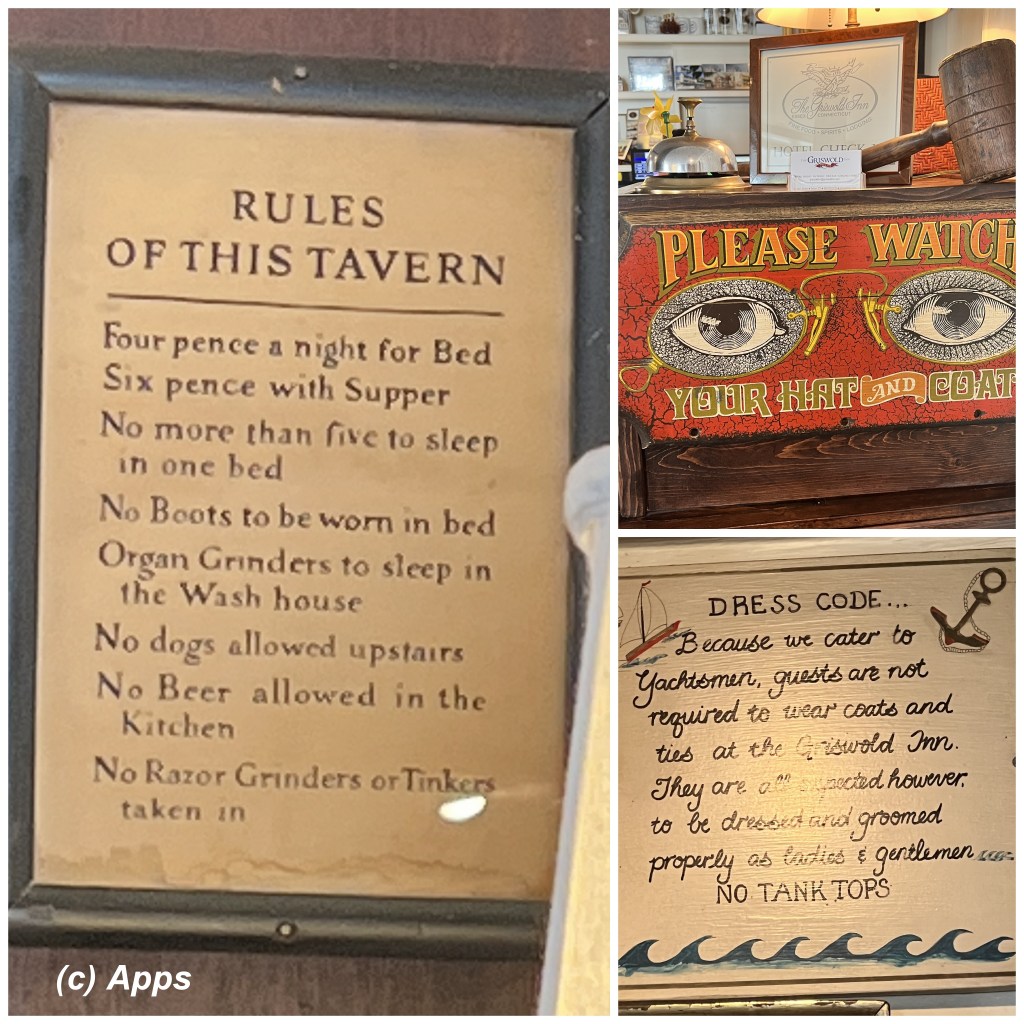 RULES
OF THIS TAVERN
Four pence a night for Bed
Six pence with Supper
No more than five to sleep
in one bed
No Boots to be worn in bed
Organ Grinders to sleep in
the Wash house
No dogs allowed upstairs
No Beer allowed in the
Kitchen
No Razor Grinders or Tinkers
taken in
(c) Apps
The Griswold Inn
HOTEL CHECK
GRISWOLD
PLEASE WATCH
YOUR HAT AND COAT
DRESS CODE...
Because we cater to
Yachtsmen, guests are not
required to wear coats and
ties at the Griswold Inn.
They are all expected however,
to be dressed and groomed
properly as ladies & gentlemen
NO TANK TOPS